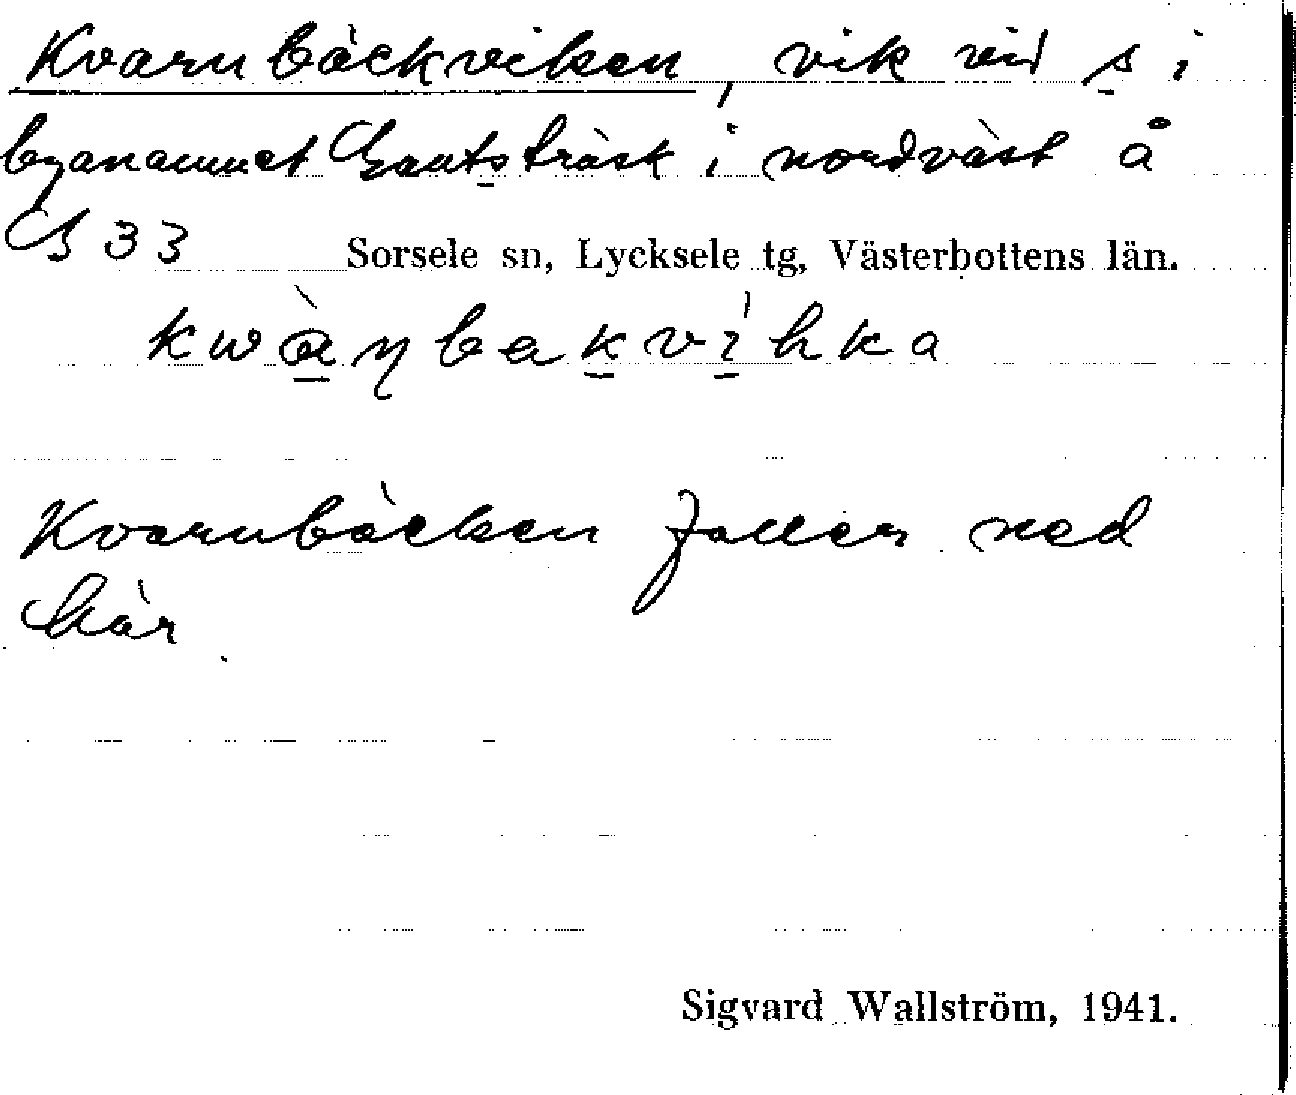 Kvarnbäckviken, vik vid s i
byanamnet Gautsträsk i nordväst å
33 Sorsele sn, Lycksele tg, Västerbottens län.
kwàɳbakvìhka
Kvarnbäcken faller ned
här.
Sigvard Wallström, 1941.